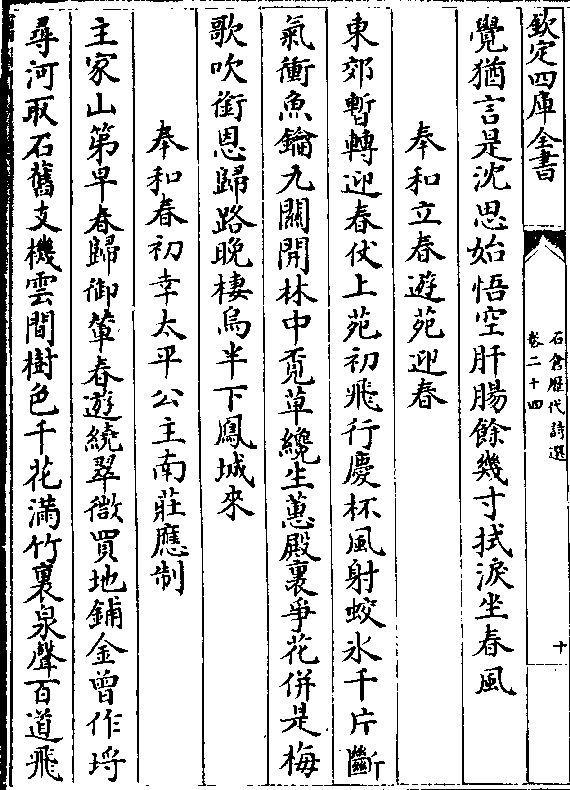 欽定四庫全書
石倉歷代詩選
卷二十四
十
覺猶言是沈思始悟空肝腸餘幾寸拭淚坐春風
奉和立春遊苑迎春
東郊暫轉迎春仗上苑初飛行慶杯風射蛟氷千片斷
氣衝魚鑰九關開林中覓草纔生蕙殿裏爭花併是梅
歌吹銜恩歸路晚棲烏半下鳳城來
奉和春初幸太平公主南莊應制
主家山第早春歸御輦春遊繞翠微買地鋪金曾作埒
尋河取石舊支機雲間樹色千花滿竹裏泉聲百道飛